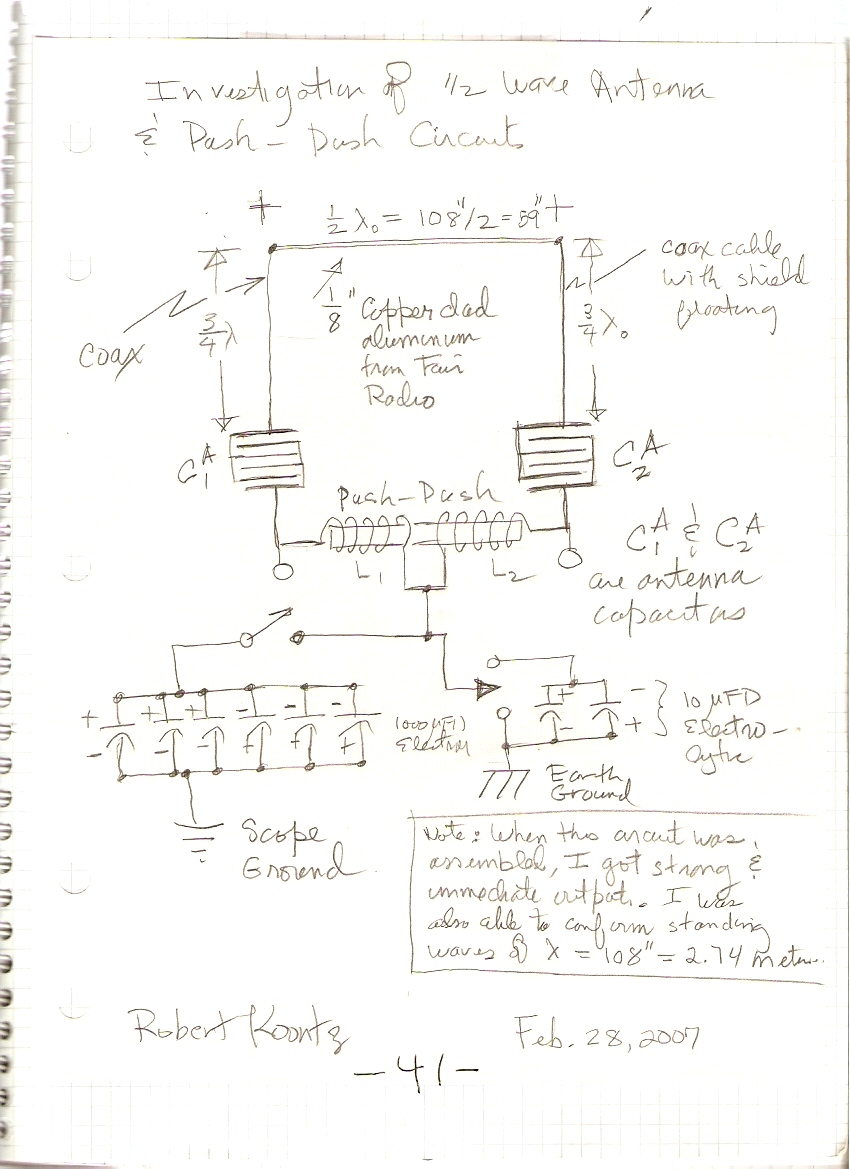 Investigation of 1/2 Wave Antenna
& Push-Dush Circuits
+ ½ λ₀ = 108"/2 = 59" +
coax cable
with shield
floating
¾ λ
coax
1/8" Copper clad
aluminum
from Fair
Radio
¾ λ₀
C₁ᴬ
C₂ᴬ
Push-Dush
L₁ L₂
C₁ᴬ & C₂ᴬ
are antenna
capacitors
+ + + - - -
- - - + + +
1000 µFD
+ -
- +
10 µFD
Electro-
lytic
Earth
Ground
Scope
Ground
Note: When this circuit was
assembled, I got strong &
immediate output. I was
also able to confirm standing
waves of λ = 108" = 2.74 meters.
Robert Koontz
Feb. 28, 2007
- 41 -